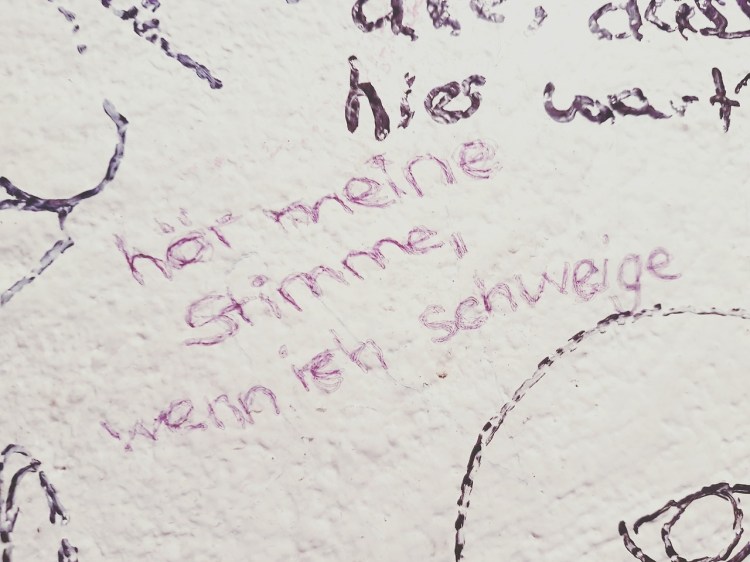 hier wart
hör meine
Stimme,
wenn ich schweige